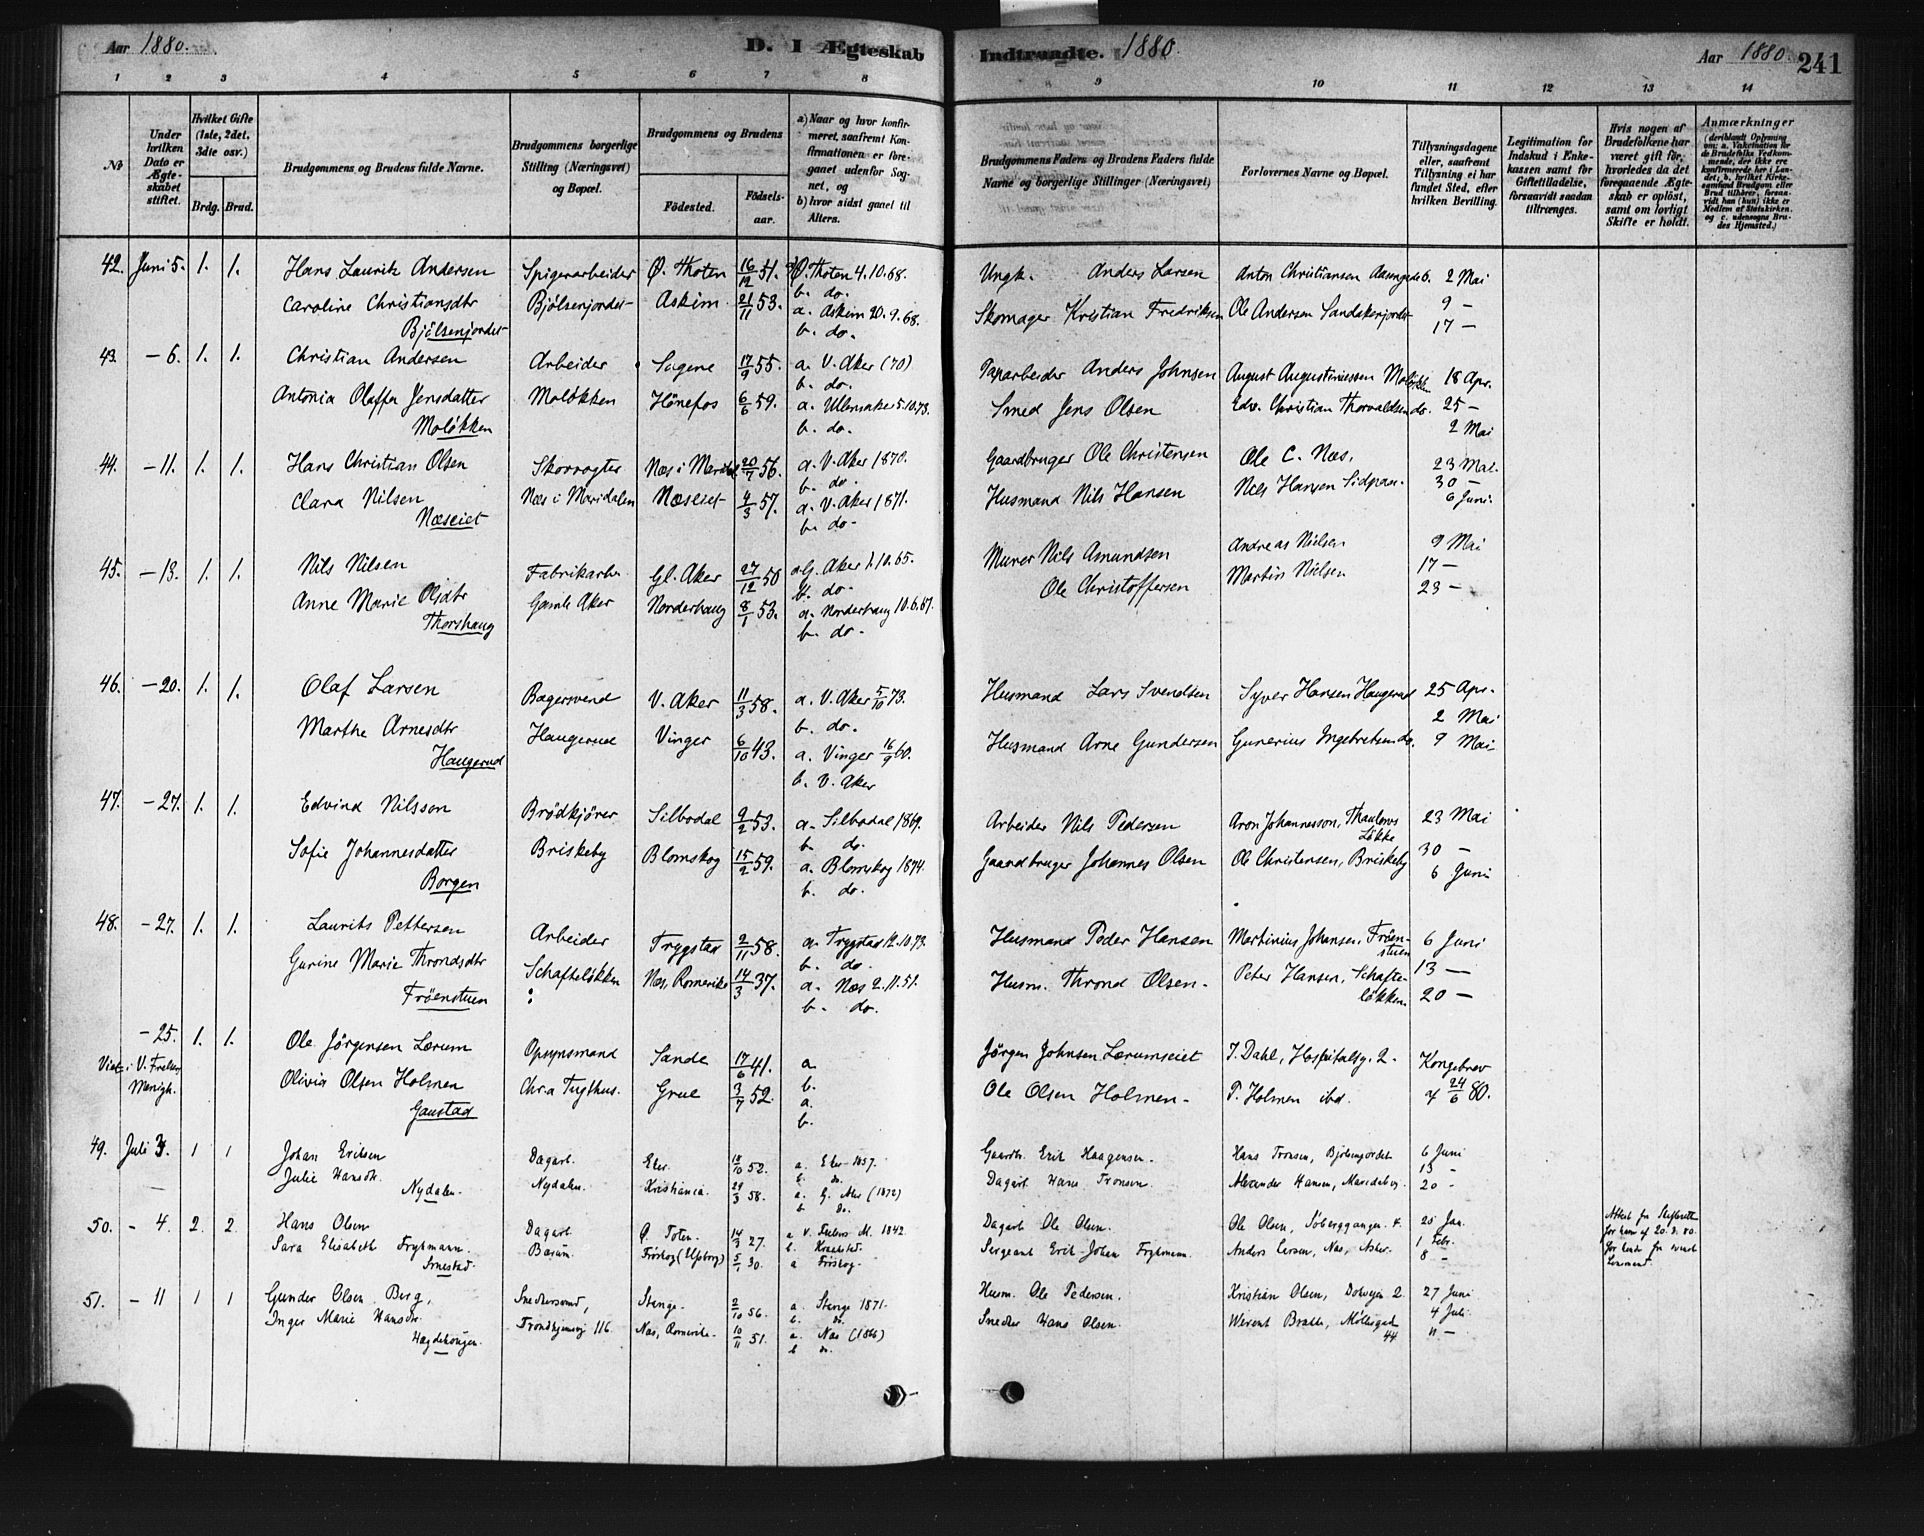 Aar 1880. D. I Ægteskab Indtraadte. 1880. Aar 1880 241
1 2 3 4 5 6 7 8 9 10 11 12 13 14
No
Under hvilken Dato er Ægteskabet stiftet.
Hvilket Gifte (1ste, 2det, 3die osv.)
Brdg. Brud.
Brudgommens og Brudens fulde Navne.
Brudgommens borgerlige Stilling (Næringsvei) og Bopæl.
Brudgommens og Brudens
Fødested.
Fødselsaar.
a) Naar og hvor konfirmeret, saafremt Konfirmationen er foregaaet udenfor Sognet, og
b) hvor sidst gaaet til Alters.
Brudgommens Faders og Brudens Faders fulde Navne og borgerlige Stillinger (Næringsvei)
Forlovernes Navne og Bopæl.
Tillysningsdagene eller, saafremt Tillysning ei har fundet Sted, efter hvilken Bevilling.
Legitimation for Indskud i Enkekassen samt for Giftetilladelse, forsaavidt saadan tiltrænges.
Hvis nogen af Brudefolkene har været gift før, hvorledes da det foregaaende Ægteskab er opløst, samt om lovligt Skifte er holdt.
Anmærkninger
(deriblandt Oplysning om: a. Vakcination for de Brudefolks Vedkommende, der ikke ere konfirmerede her i Landet; b. hvilket Kirkesamfund Brudgom eller Brud tilhører, forsaavidt han (hun) ikke er Medlem af Statskirken, og c. udensogns Brudes Hjemsted.)
42. Juni 5. 1. 1. Hans Laurits Andersen Spigerarbeider Ø. Thoten 16/12 51. a Ø. Thoten 4.10.68. Ungk. Anders Larsen Anton Christiansen Aasengade 6. 2 Mai
b. do.
Caroline Christiansdtr Bjølsenjordet Askim 21/11 53. a. Askim 20.9.68. Skomager Kristian Fredriksen Ole Andersen Sandakerjordet 9 -
Bjølsenjordet b. do. 17 -
43. - 6. 1. 1. Christian Andersen Arbeider Sagene 17/9 55. a. V. Aker (70) Paparbeider Anders Johnsen August Augustiniussen Moløkken 18 Apr.
b. do.
Antonia Olaffa Jensdatter Moløkken Hønefos 6/6 59. a. Ullensaker 5.10.73. Smed Jens Olsen Edv. Christian Thorvaldsen do. 25 -
Moløkken b. do. 2 Mai
44. - 11. 1. 1. Hans Christian Olsen Skovvogter Næs i Maridal 20/7 56. a. V. Aker 1870. Gaardbruger Ole Christensen Ole C. Næs. 23 Mai
b. do. 30 -
Clara Nilsen Næs i Maridalen Næseiet 4/3 57. a. V. Aker 1871. Husmand Nils Hansen Nils Hansen 6 Juni
Næseiet b. do.
45. - 13. 1. 1. Nils Nilsen Fabrikarb. Gl. Aker 27/12 50 a. G. Aker 1.10.65. Murer Nils Amundsen Andreas Nielsen 9 Mai
b. do. 17 -
Anne Marie Olsdtr Gamle Aker Norderhaug 8/1 53. a. Norderhaug 10.6.67. Ole Christoffersen Martin Nielsen 23 -
Thorshaug b. do.
46. - 20. 1. 1. Olaf Larsen Bagersvend V. Aker 11/3 58. a. V. Aker 5/10 73. Husmand Lars Svendsen Syver Hansen Haugerud 25 Apr.
b. do. 2 Mai
Marthe Arnesdtr Haugerud Vinger 6/10 43. a. Vinger 16/9 60. Husmand Arne Gundersen Gunerius Ingebretsen do. 9 Mai
Haugerud b. V. Aker
47. - 27. 1. 1. Edvind Nilsson Brødkjører Silbodal 9/2 53. a. Silbodal 1869. Arbeider Nils Pedersen Aron Johannesson, Thauløws Løkke 23 Mai
b. do. 30 -
Sofie Johannesdatter Briskeby Blomskog 15/2 59. a. Blomskog 1874. Gaardbruger Johannes Olsen Ole Christensen, Briskeby 6 Juni
Borgen b. do.
48. - 27. 1. 1. Laurits Pettersen Arbeider Trygstad 2/11 58. a. Trygstad 12.10.73. Husmand Peder Hansen Martinius Johansen, Frøenstuen 6 Juni
b. do. 13 -
Gurine Marie Throndsdtr Schafteløkken Næs, Romerike 14/3 37. a. Næs 2.11.51. Husm. Thrond Olsen. Peter Hansen, Schafteløkken. 20 -
Frøenstuen b. do.
- 25. 1. 1. Ole Jörgensen Lærum Opsynsmand Sande 17/6 41. a Jörgen Johnsen Lærumseiet J. Dahl, Hospitalsg. 2. Kongebrev
Viet i V. Frelsers Menigh. b.
Olivia Olsen Holmen Chr.a Tugthus. Grue 3/7 52. a. Ole Olsen Holmen. P. Holmen ibd. 24/6 80.
Gaustad b.
49. Juli 3. 1 1 Johan Eriksen Dagarb. Eker 18/10 52. a. Eker 1857. Gaardbr. Erik Haagensen. Hans Tronsen, Bjølsenjordet 6 Juni
b. do. 13 -
Julie Hansdtr. Nydalen. Kristiania. 29/3 58. a. G. Aker (1872) Dagarb. Hans Tronsen. Alexander Hansen, 20 -
Nydalen. b. do.
50. - 4. 2. 2. Hans Olsen Dagarb. Ø. Toten. 14/3 27. a V. Frelsers M. 1842. Dagarb. Ole Olsen. Ole Olsen, 4. 25 Jan.
b. 1 Febr.
Sara Elisabeth Frykmann. Bærum. 5/1 30. a Sergeant Erik Johan Frykmann. Anders Larsen, Næs, Asker. 8 -
51. - 11 1 1 Gunder Olsen Berg, Snedkersvend, Stange. 2/10 56. a. Stange 1871. Husm. Ole Pedersen. Kristian Olsen, 2. 27 Juni
b. do. 4 Juli
Inger Marie Hansdtr. Trondhjemsvej 116 Næs, Romerike. 10/11 51. a. Næs (1866) Snedker Hans Olsen. Werent Bratli, Møllergad. 44 11 -
Hægdehougen. b do.